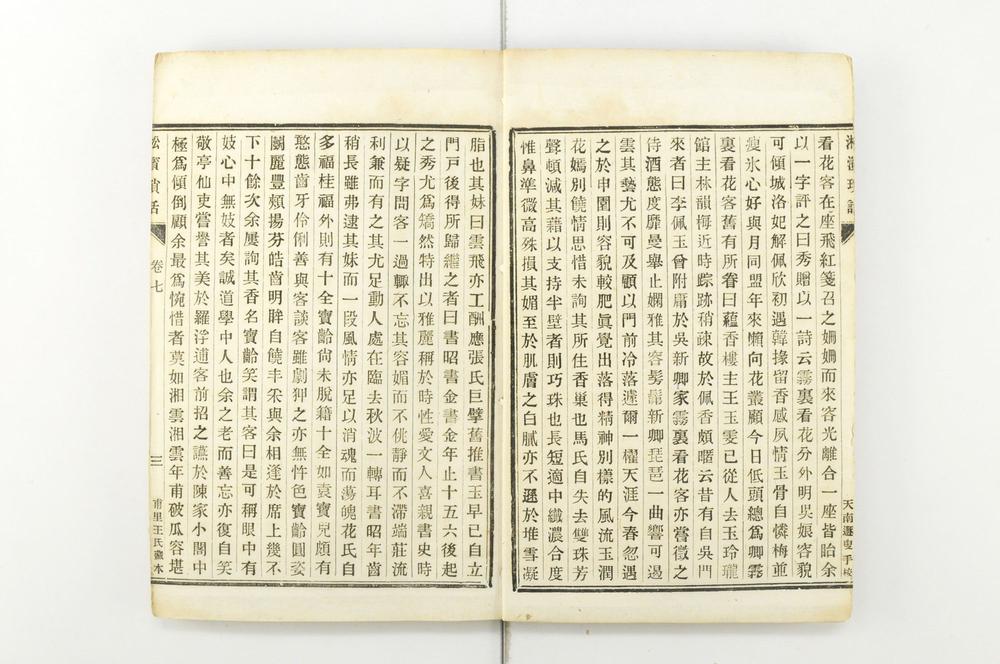 看花客在座飛紅箋召之姍姍而來容光離合一座皆眙余
以一字評之曰秀贈以一詩云霧裏看花分外明吳娘容貌
可傾城洛妃解佩欣初遇韓掾留香感夙情玉骨自憐梅並
瘦氷心好與月同盟年來懶向花叢顧今日低頭總爲卿霧
裏看花客舊有所眷曰蘊香樓主王玉雯已從人去玉玲瓏
館主林韻梅近時踪跡稍疎故於佩香頗暱云昔有自吳門
來者曰李佩玉曾附屠於吳新卿家霧裏看花客亦嘗徵之
侍酒態度靡曼舉止嫻雅其容髣髴新卿琵琶一曲響可遏
雲其藝尤不可及顧以門前冷落遽爾一櫂天涯今春忽遇
之於申園則容貌較肥眞覺出落得精神別樣的風流玉潤
花嫣別饒情思惜未詢其所住香巢也馬氏自失去雙珠芳
聲頓減其藉以支持半壁者則巧珠也長短適中纖濃合度
惟鼻準微高殊損其媚至於肌膚之白膩亦不遜於堆雪凝
天南遯叟手校
脂也其妹曰雲飛亦工酬應張氏巨擘舊推書玉早已自立
門戸後得所歸繼之者曰書昭書金書金年止十五六後起
之秀尤爲矯然特出以雅麗稱於時性愛文人喜親書史時
以疑字問客一過輙不忘其容媚而不佻靜而不滯端莊流
利兼而有之其尤足動人處在臨去秋波一轉耳書昭年齒
稍長雖弗逮其妹而一段風情亦足以消魂而蕩魄花氏自
多福桂福外則有十全寶齡尙未脫籍十全如袁寶兒頗有
憨態齒牙伶俐善與客談客雖劇狎之亦無忤色寶齡圓姿
鬭麗豐頰揚芬皓齒明眸自饒丰采與余相逢於席上幾不
下十餘次余屢詢其香名寶齡笑謂其客曰是可稱眼中有
妓心中無妓者矣誠道學中人也余之老而善忘亦復自笑
敬亭仙吏嘗譽其美於羅浮逋客前招之讌於陳家小閣中
極爲傾倒顧余最爲惋惜者莫如湘雲湘雲年甫破瓜容堪
淞濱瑣話
卷七
三
甫里王氏藏本